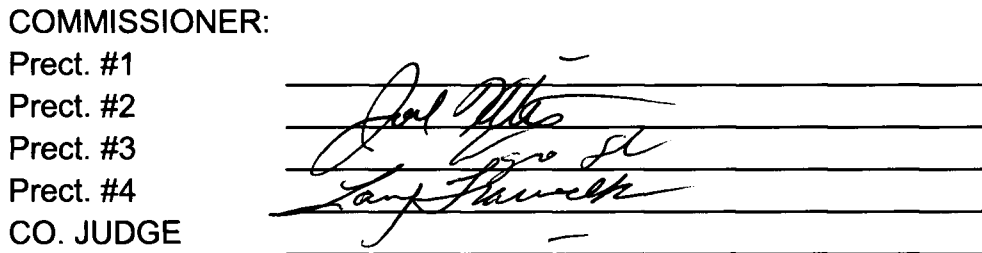 COMMISSIONER:
Prect. #1 –
Prect. #2 Joel
Prect. #3
Prect. #4 Larry
CO. JUDGE –